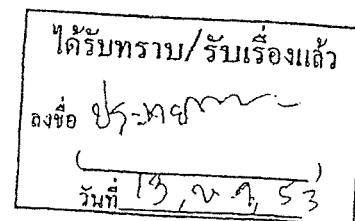 ได้รับทราบ/รับเรื่องแล้ว
ลงชื่อ
(                    )
วันที่ 13 , พ.ค, 53